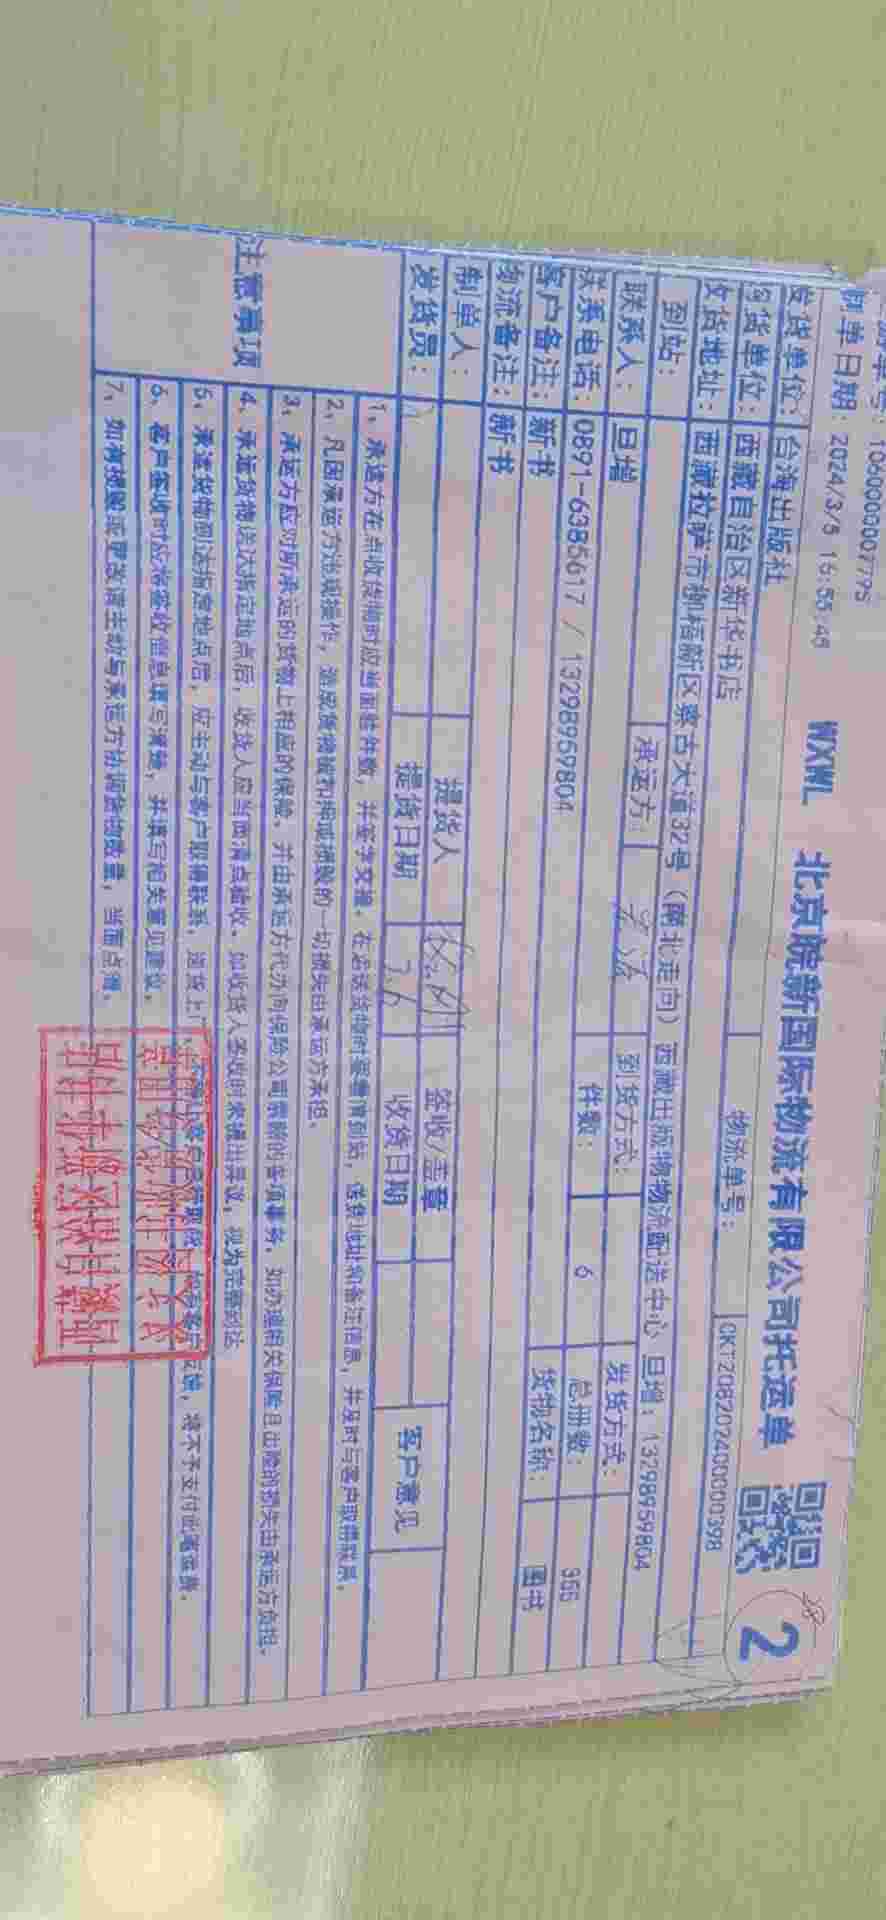 WXWL 北京皖新国际物流有限公司托运单
2
制单日期: 2024/3/5 16:55:45
物流单号: CKT20820240000398
发货单位: 台海出版社
收货单位: 西藏自治区新华书店
收货地址: 西藏拉萨市柳梧新区察古大道32号(南北走向)西藏出版物物流配送中心 旦增: 13298959804
到站: 承运方: 到货方式: 发货方式:
联系人: 旦增
联系电话: 0891-6385617 / 13298959804 件数: 6 总册数: 366
客户备注: 新书 货物名称: 图书
物流备注: 新书
制单人: 提货人 签收/盖章 客户意见
发货员: 提货日期 3.6 收货日期
注意事项
1、承运方在点收货物时应当面验件数,并签字交接。在发送货物时要看清到站、送货地址和备注信息,并及时与客户取得联系。
2、凡因承运方违规操作,造成货物破损或损毁的一切损失由承运方承担。
3、承运方应对所承运的货物上相应的保险,并由承运方代办向保险公司索赔的各项事务,如办理相关保险且出险的损失由承运方负担。
4、承运货物送达指定地点后,收货人应当面清点验收,如收货人签收时未提出异议,视为完整到达
5、承运货物到达指定地点后,应主动与客户取得联系,送货上门,
将不予支付此笔运费。
6、客户签收时应将签收信息填写清楚,并填写相关意见建议。
7、
当面点清。
西藏自治区新华书店